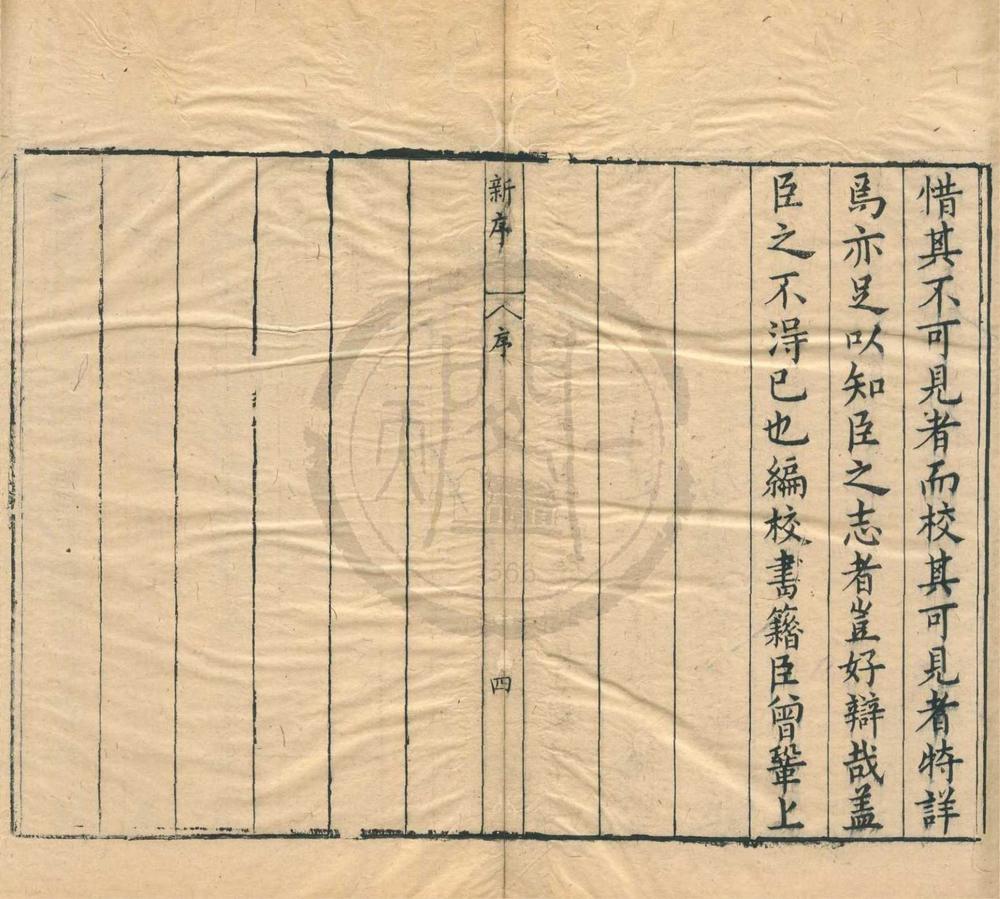 惜其不可見者而校其可見者特詳
焉亦足以知臣之志者豈好辯哉蓋
臣之不得已也編校書籍臣曾鞏上
新序
序
四